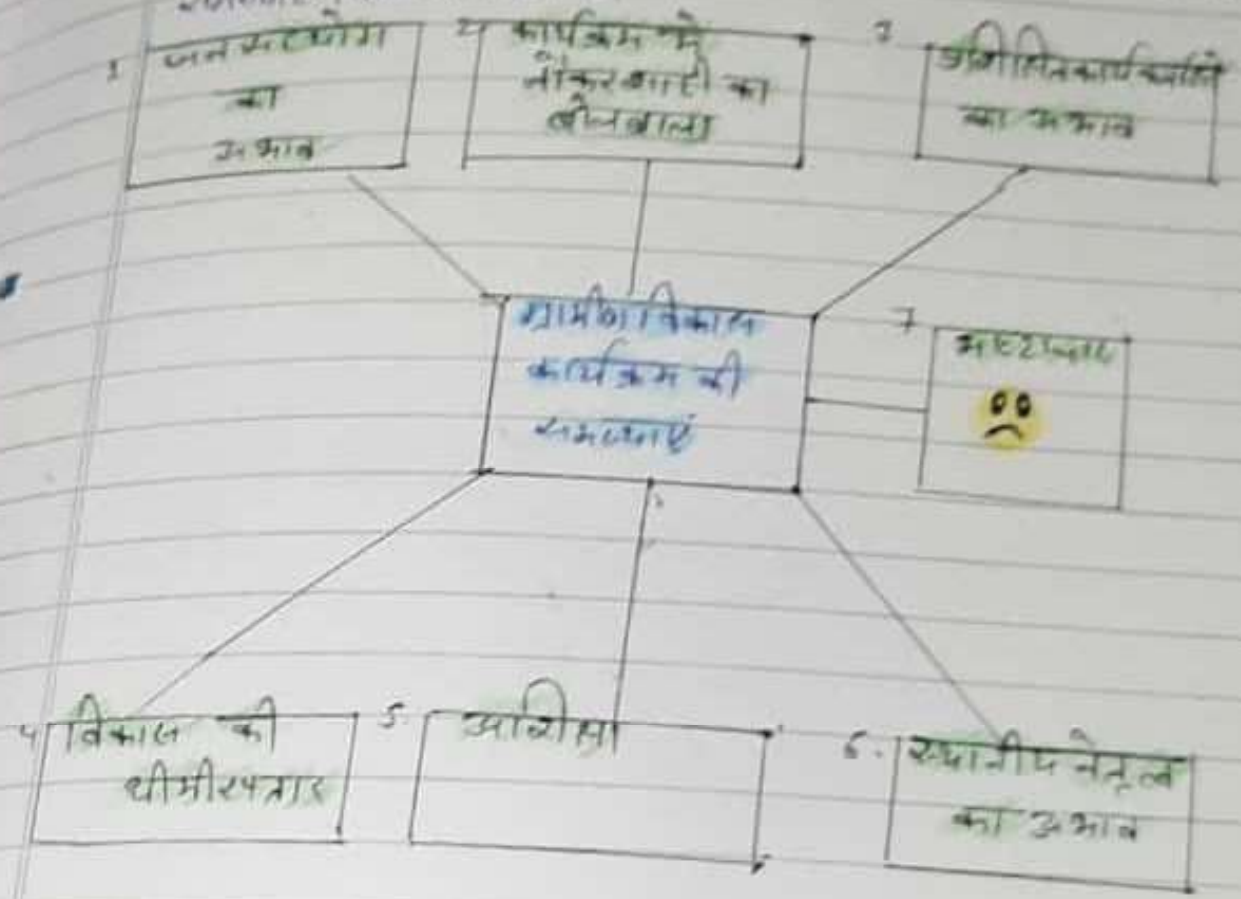 1 जनसहयोग
का
अभाव
2 कार्यक्रम में
नौकरशाही का
बोलबाला
3 प्रशिक्षित कार्यकर्ताओं
का अभाव
ग्रामीण विकास
कार्यक्रम की
समस्याएं
7 भ्रष्टाचार
4 विकास की
धीमी रफ्तार
5 अशिक्षा
6. स्थानीय नेतृत्व
का अभाव